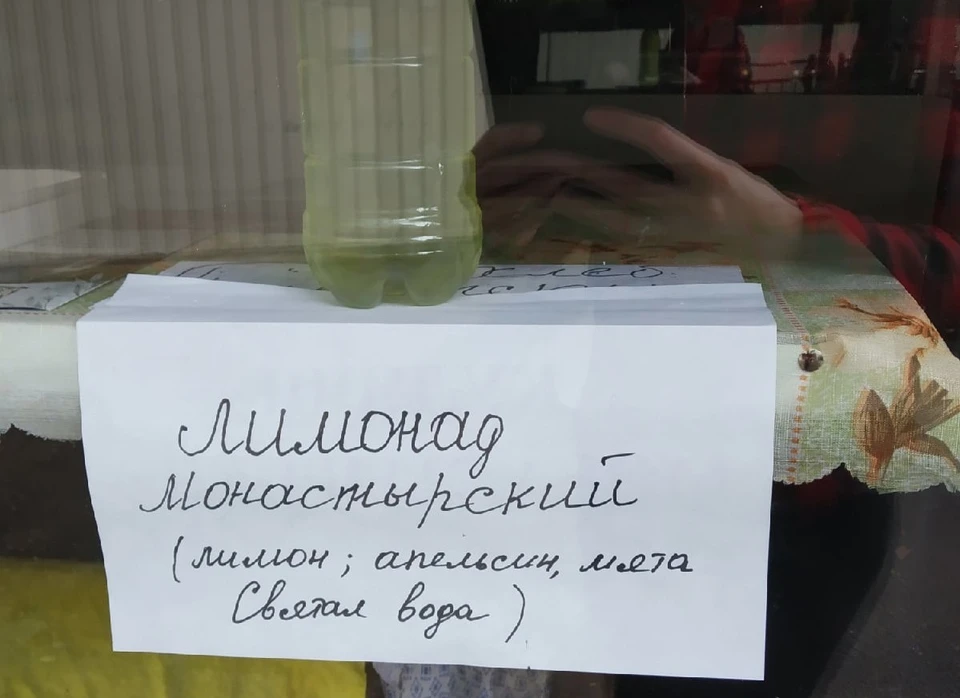 Лимонад
Монастырский
(лимон; апельсин, мята
Святая вода)